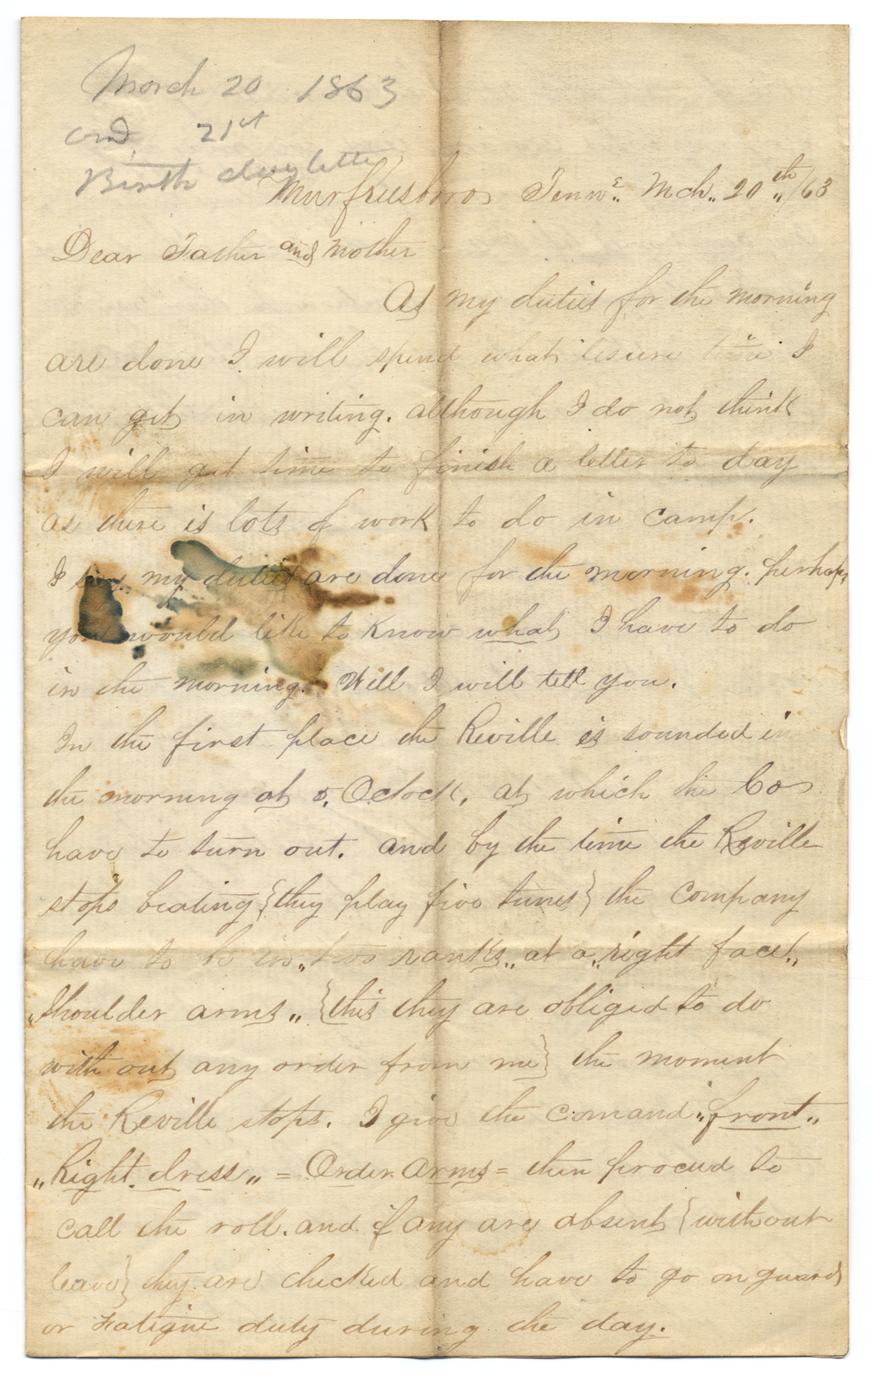 March 20 1863
and 21st
Birth day letter
Murfreesboro Tenne. Mch. 20th/63
Dear Father and Mother
As my duties for the morning
are done I will spend what lesure time I
can get in writing. although I do not think
I will get time to finish a letter to day
as there is lots of work to do in camp.
I say my duties are done for the morning. perhaps
you would like to know what I have to do
in the morning. Well I will tell you.
In the first place the Reville is sounded in
the morning at 5, Oclock, at which the Co
have to turn out. and by the time the Reville
stops beating {they play five tunes} the company
have to be in "two ranks" at a "right face",
"Shoulder arms" {this they are obliged to do
with out any order from me} the moment
the Reville stops. I give the comand "front"
"Right dress" = Order Arms = then procced to
call the roll. and if any are absent {without
leave} they are checked and have to go on guard
or Fatigue duty during the day.